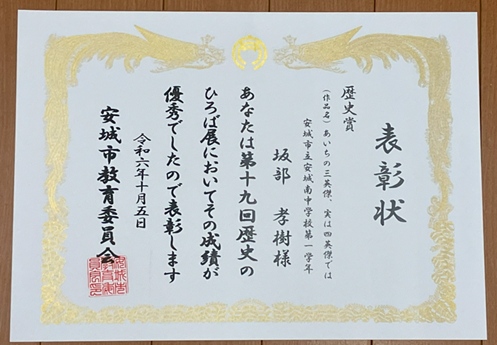 表彰状
歴史賞
（作品名）あいちの三英傑、実は四英傑では
安城市立安城南中学校第一学年
坂部 孝樹様
あなたは第十九回歴史の
ひろば展においてその成績が
優秀でしたので表彰します
令和六年十月五日
安城市教育委員会